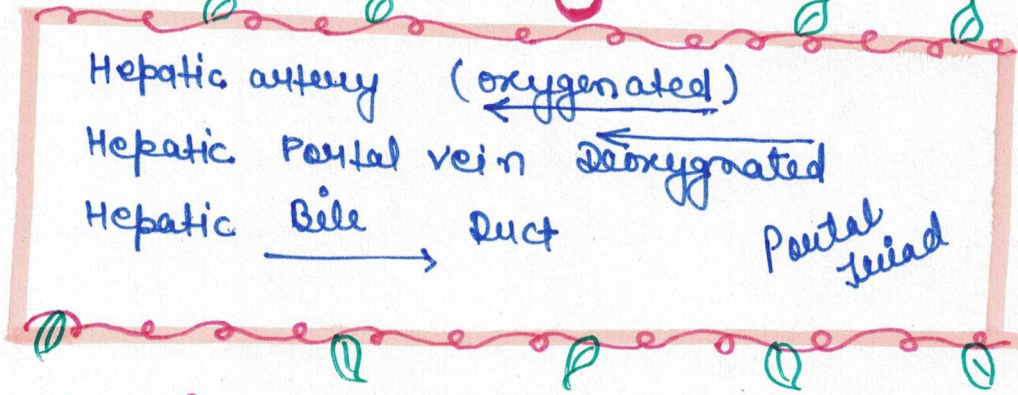 Hepatic artery (oxygenated)
Hepatic Portal vein Deoxygnated
Hepatic Bile Duct
Portal
triad